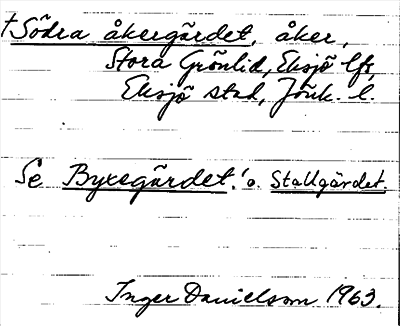 †Södra åkergärdet, åker,
Stora Grönlid, Eksjö lfs,
Eksjö stad, Jönk. l.
Se Byxegärdet! o. Stallgärdet.
Inger Danielsson 1963.